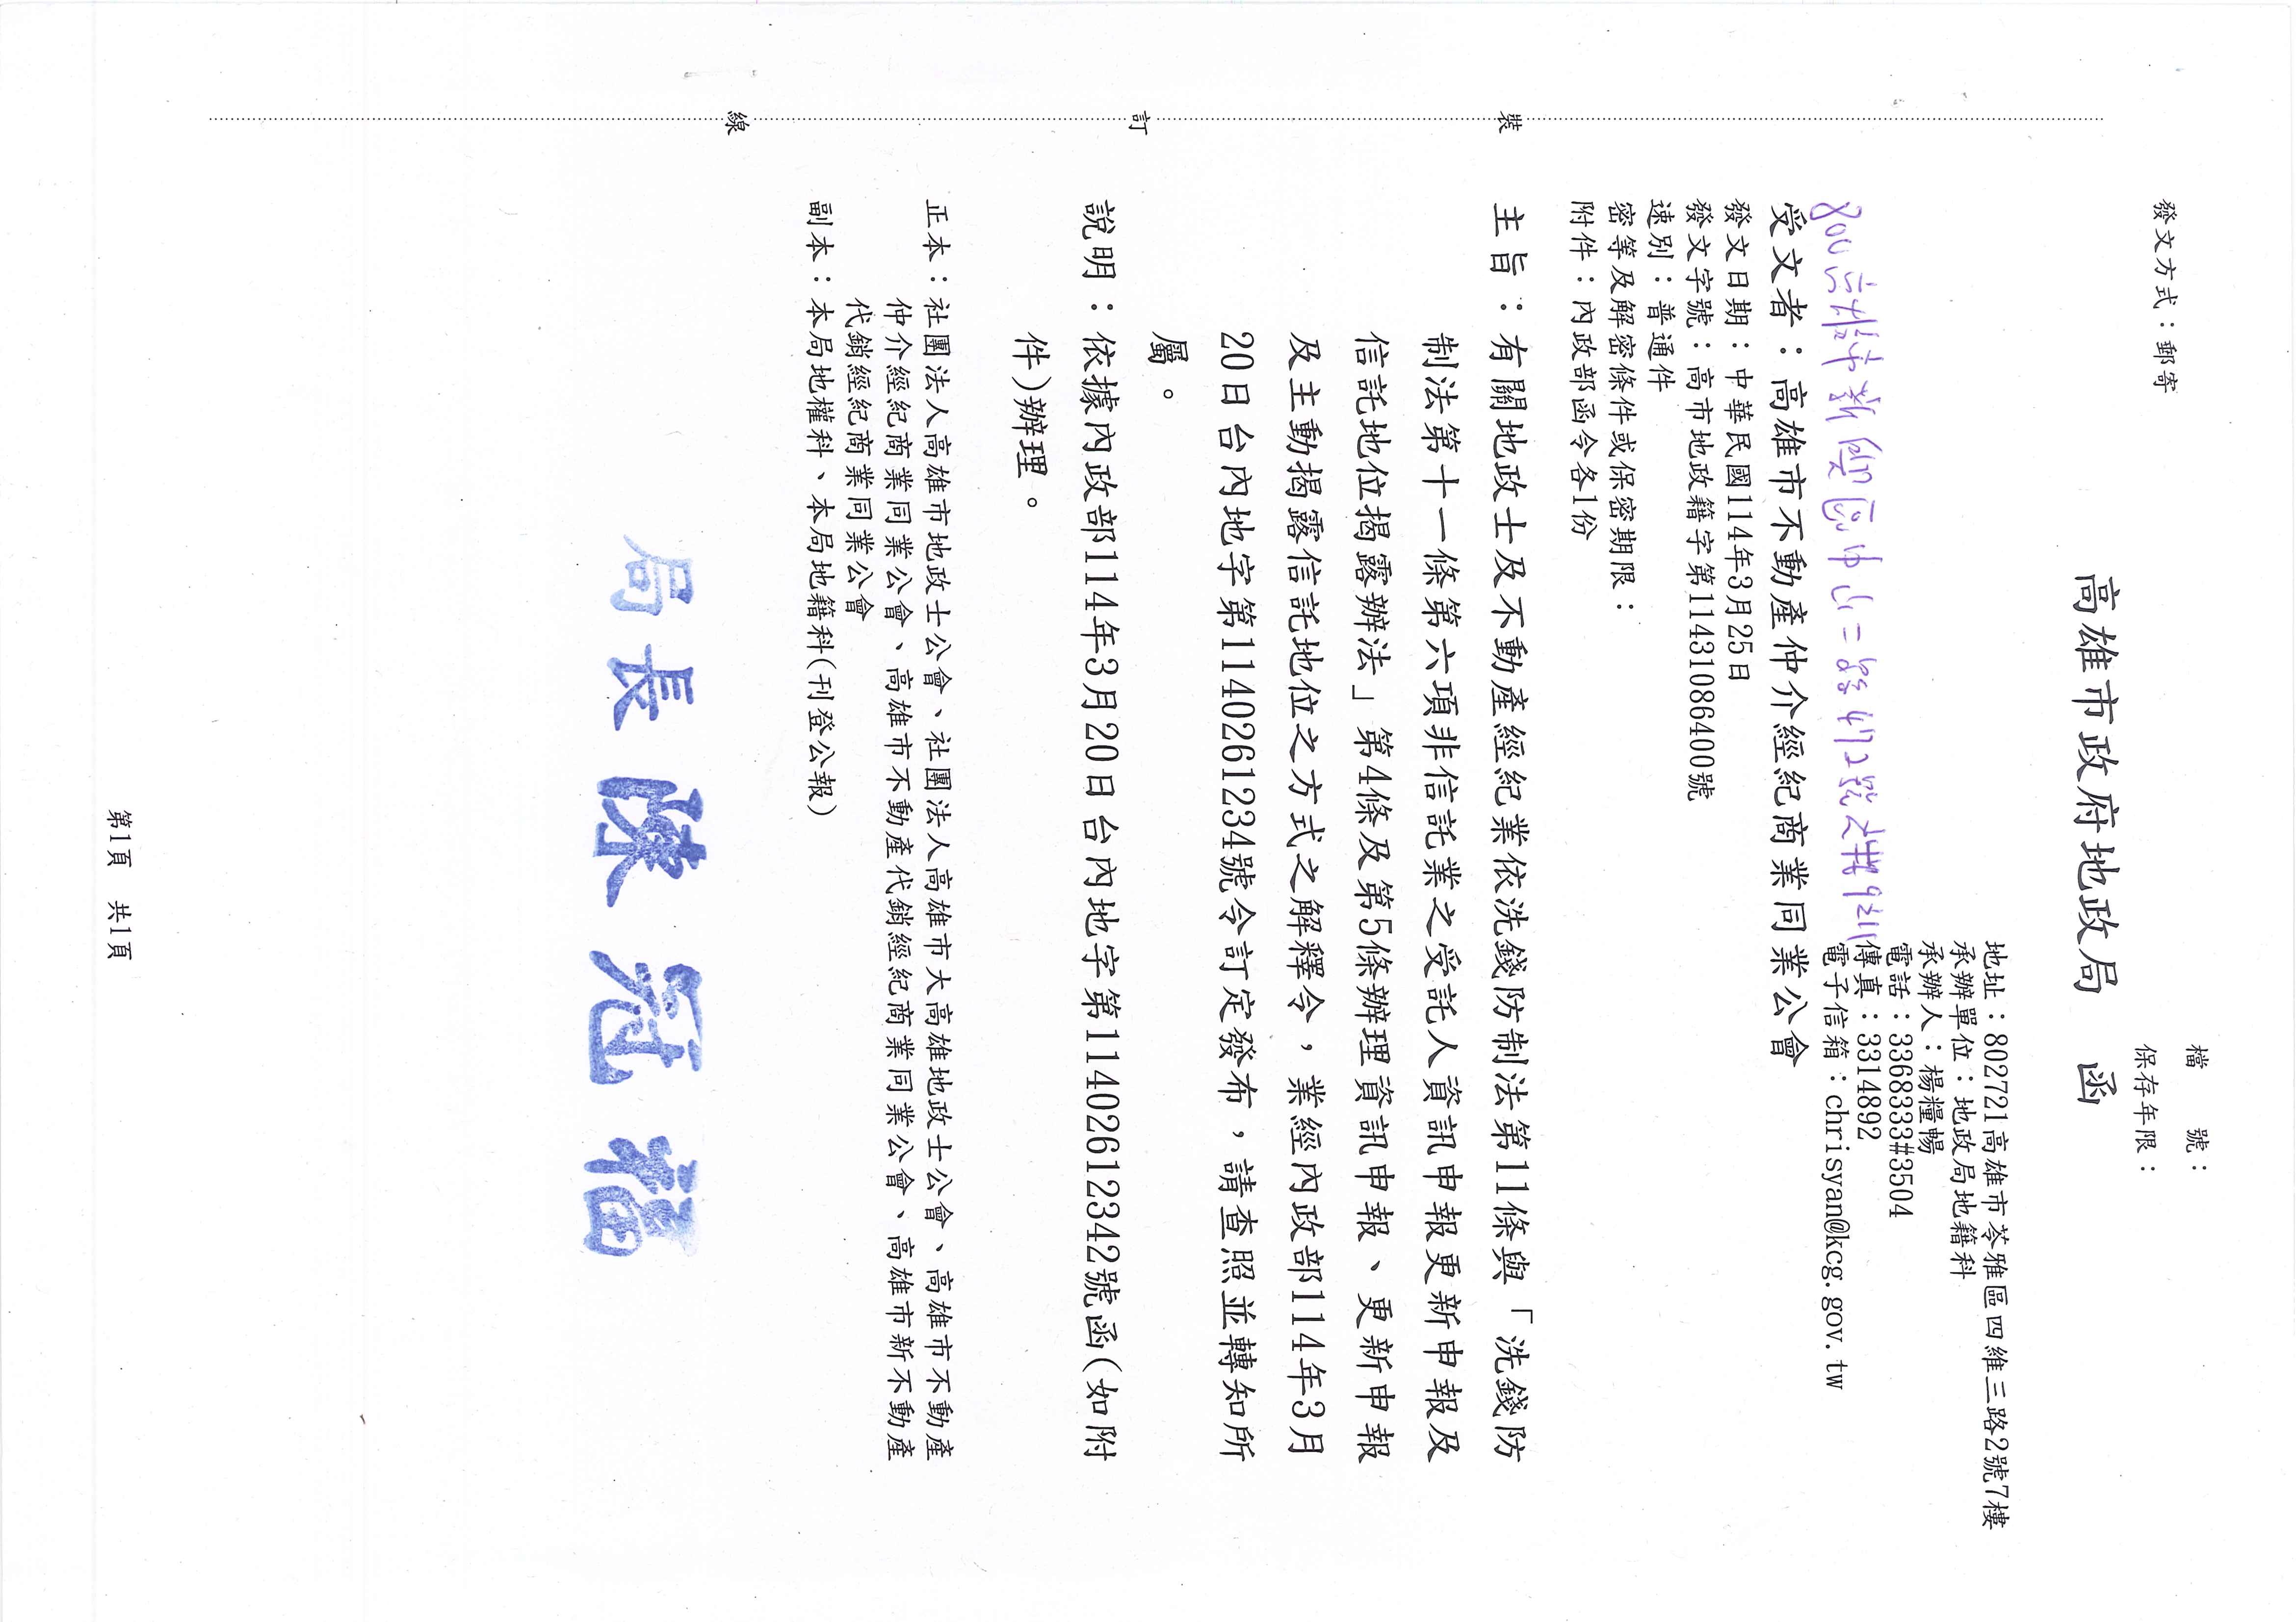 檔　　號：
保存年限：
發文方式：郵寄
高雄市政府地政局　函
地址：802721高雄市苓雅區四維三路2號7樓
承辦單位：地政局地籍科
承辦人：楊糧暢
電話：3368333#3504
傳真：3314892
電子信箱：chrisyan@kcg.gov.tw
800高雄市新興區中山一路472號之
受文者：高雄市不動產仲介經紀商業同業公會
發文日期：中華民國114年3月25日
發文字號：高市地政籍字第11431086400號
速別：普通件
密等及解密條件或保密期限：
附件：內政部函令各1份
主旨：有關地政士及不動產經紀業依洗錢防制法第11條與「洗錢防
制法第十一條第六項非信託業之受託人資訊申報更新申報及
信託地位揭露辦法」第4條及第5條辦理資訊申報、更新申報
及主動揭露信託地位之方式之解釋令，業經內政部114年3月
20日台內地字第1140261234號令訂定發布，請查照並轉知所
屬。
說明：依據內政部114年3月20日台內地字第11402612342號函(如附
件)辦理。
正本：社團法人高雄市地政士公會、社團法人高雄市大高雄地政士公會、高雄市不動產
仲介經紀商業同業公會、高雄市不動產代銷經紀商業同業公會、高雄市新不動產
代銷經紀商業同業公會
副本：本局地權科、本局地籍科(刊登公報)
局長陳冠福
裝
訂
線
第1頁　共1頁